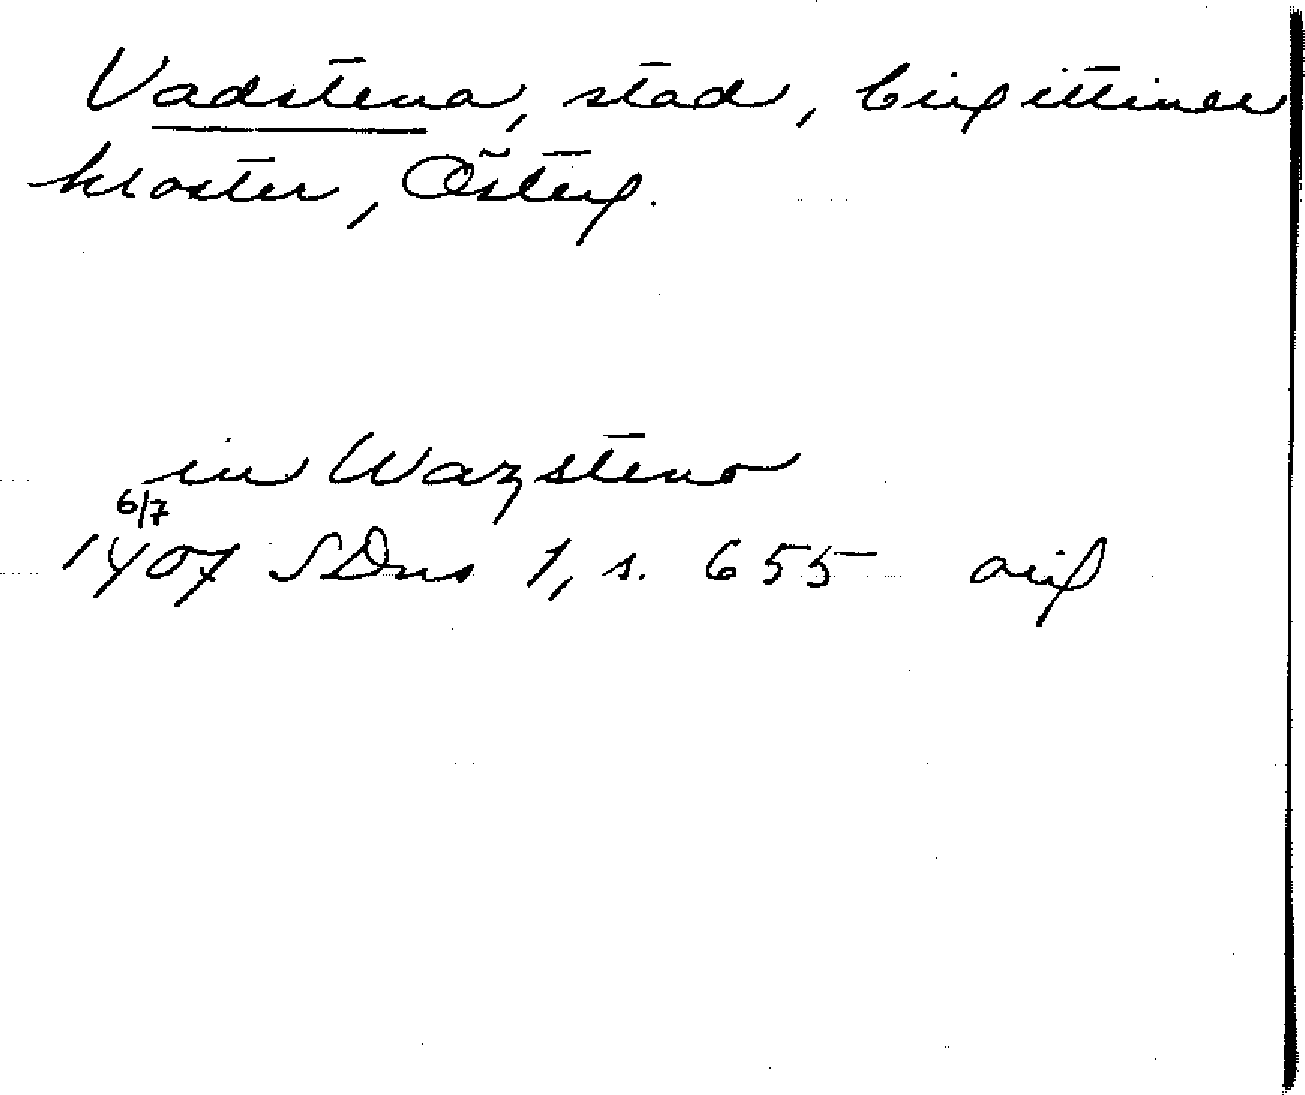 Vadstena, stad, birgittiner
kloster, Österg.
in Wazsteno
6/7
1407 SDns 1, s. 655 orig